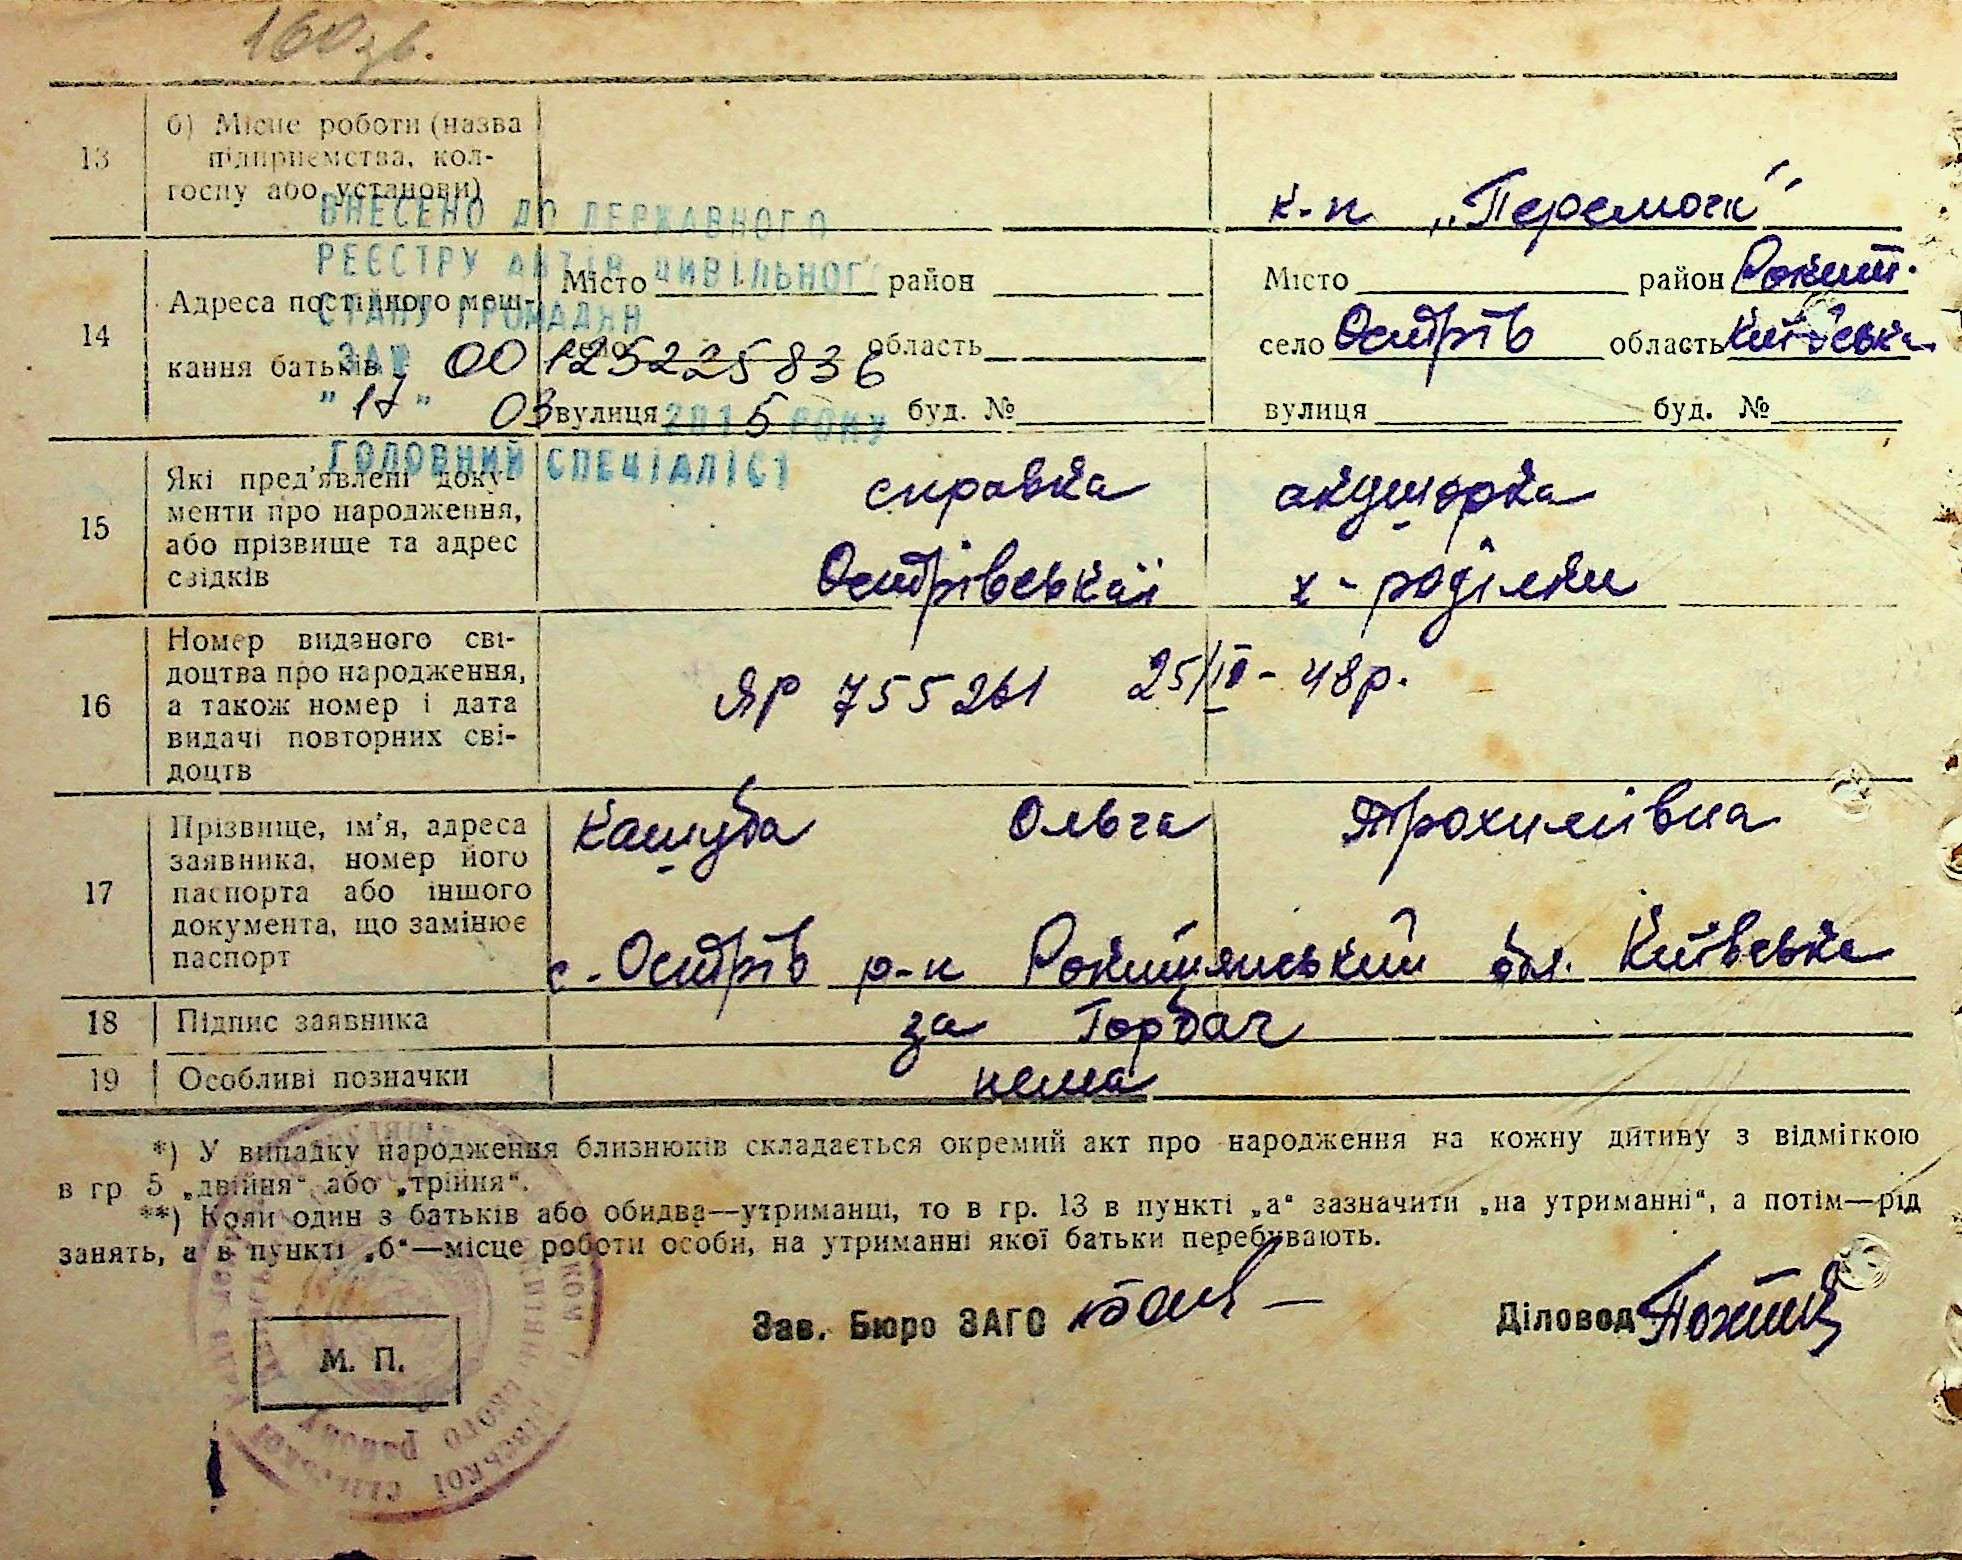 160 зв.
13
б) Місце роботи (назва
підприємства, кол-
госпу або установи)
к-п „Перемоги"
ВНЕСЕНО ДО ДЕРЖАВНОГО
РЕЄСТРУ АКТІВ ЦИВІЛЬНОГО
СТАНУ ГРОМАДЯН
ЗА № 00125225836
"17" 03 2015 РОКУ
ГОЛОВНИЙ СПЕЦІАЛІСТ
14
Адреса постійного меш-
кання батьків
Місто район
село область
вулиця буд. №
Місто район Рокит.
село Острів область Київська
вулиця буд. №
15
Які пред'явлені доку-
менти про народження,
або прізвище та адрес
свідків
справка акушорка
Острівської х-роділки
16
Номер виданого сві-
доцтва про народження,
а також номер і дата
видачі повторних сві-
доцтв
ЯР 755261 25/ - 48р.
17
Прізвище, ім'я, адреса
заявника, номер його
паспорта або іншого
документа, що замінює
паспорт
Кашуба Ольга Трохимівна
с. Острів р-н Рокитянський обл. Київська
18
Підпис заявника
за Горбач
19
Особливі позначки
нема
*) У випадку народження близнюків складається окремий акт про народження на кожну дитину з відміткою
в гр 5 „двійня“ або „трійня“.
**) Коли один з батьків або обидва—утриманці, то в гр. 13 в пункті „а“ зазначити „на утриманні“, а потім—рід
занять, а в пункті „б“—місце роботи особи, на утриманні якої батьки перебувають.
Зав. Бюро ЗАГС
Діловод
М. П.